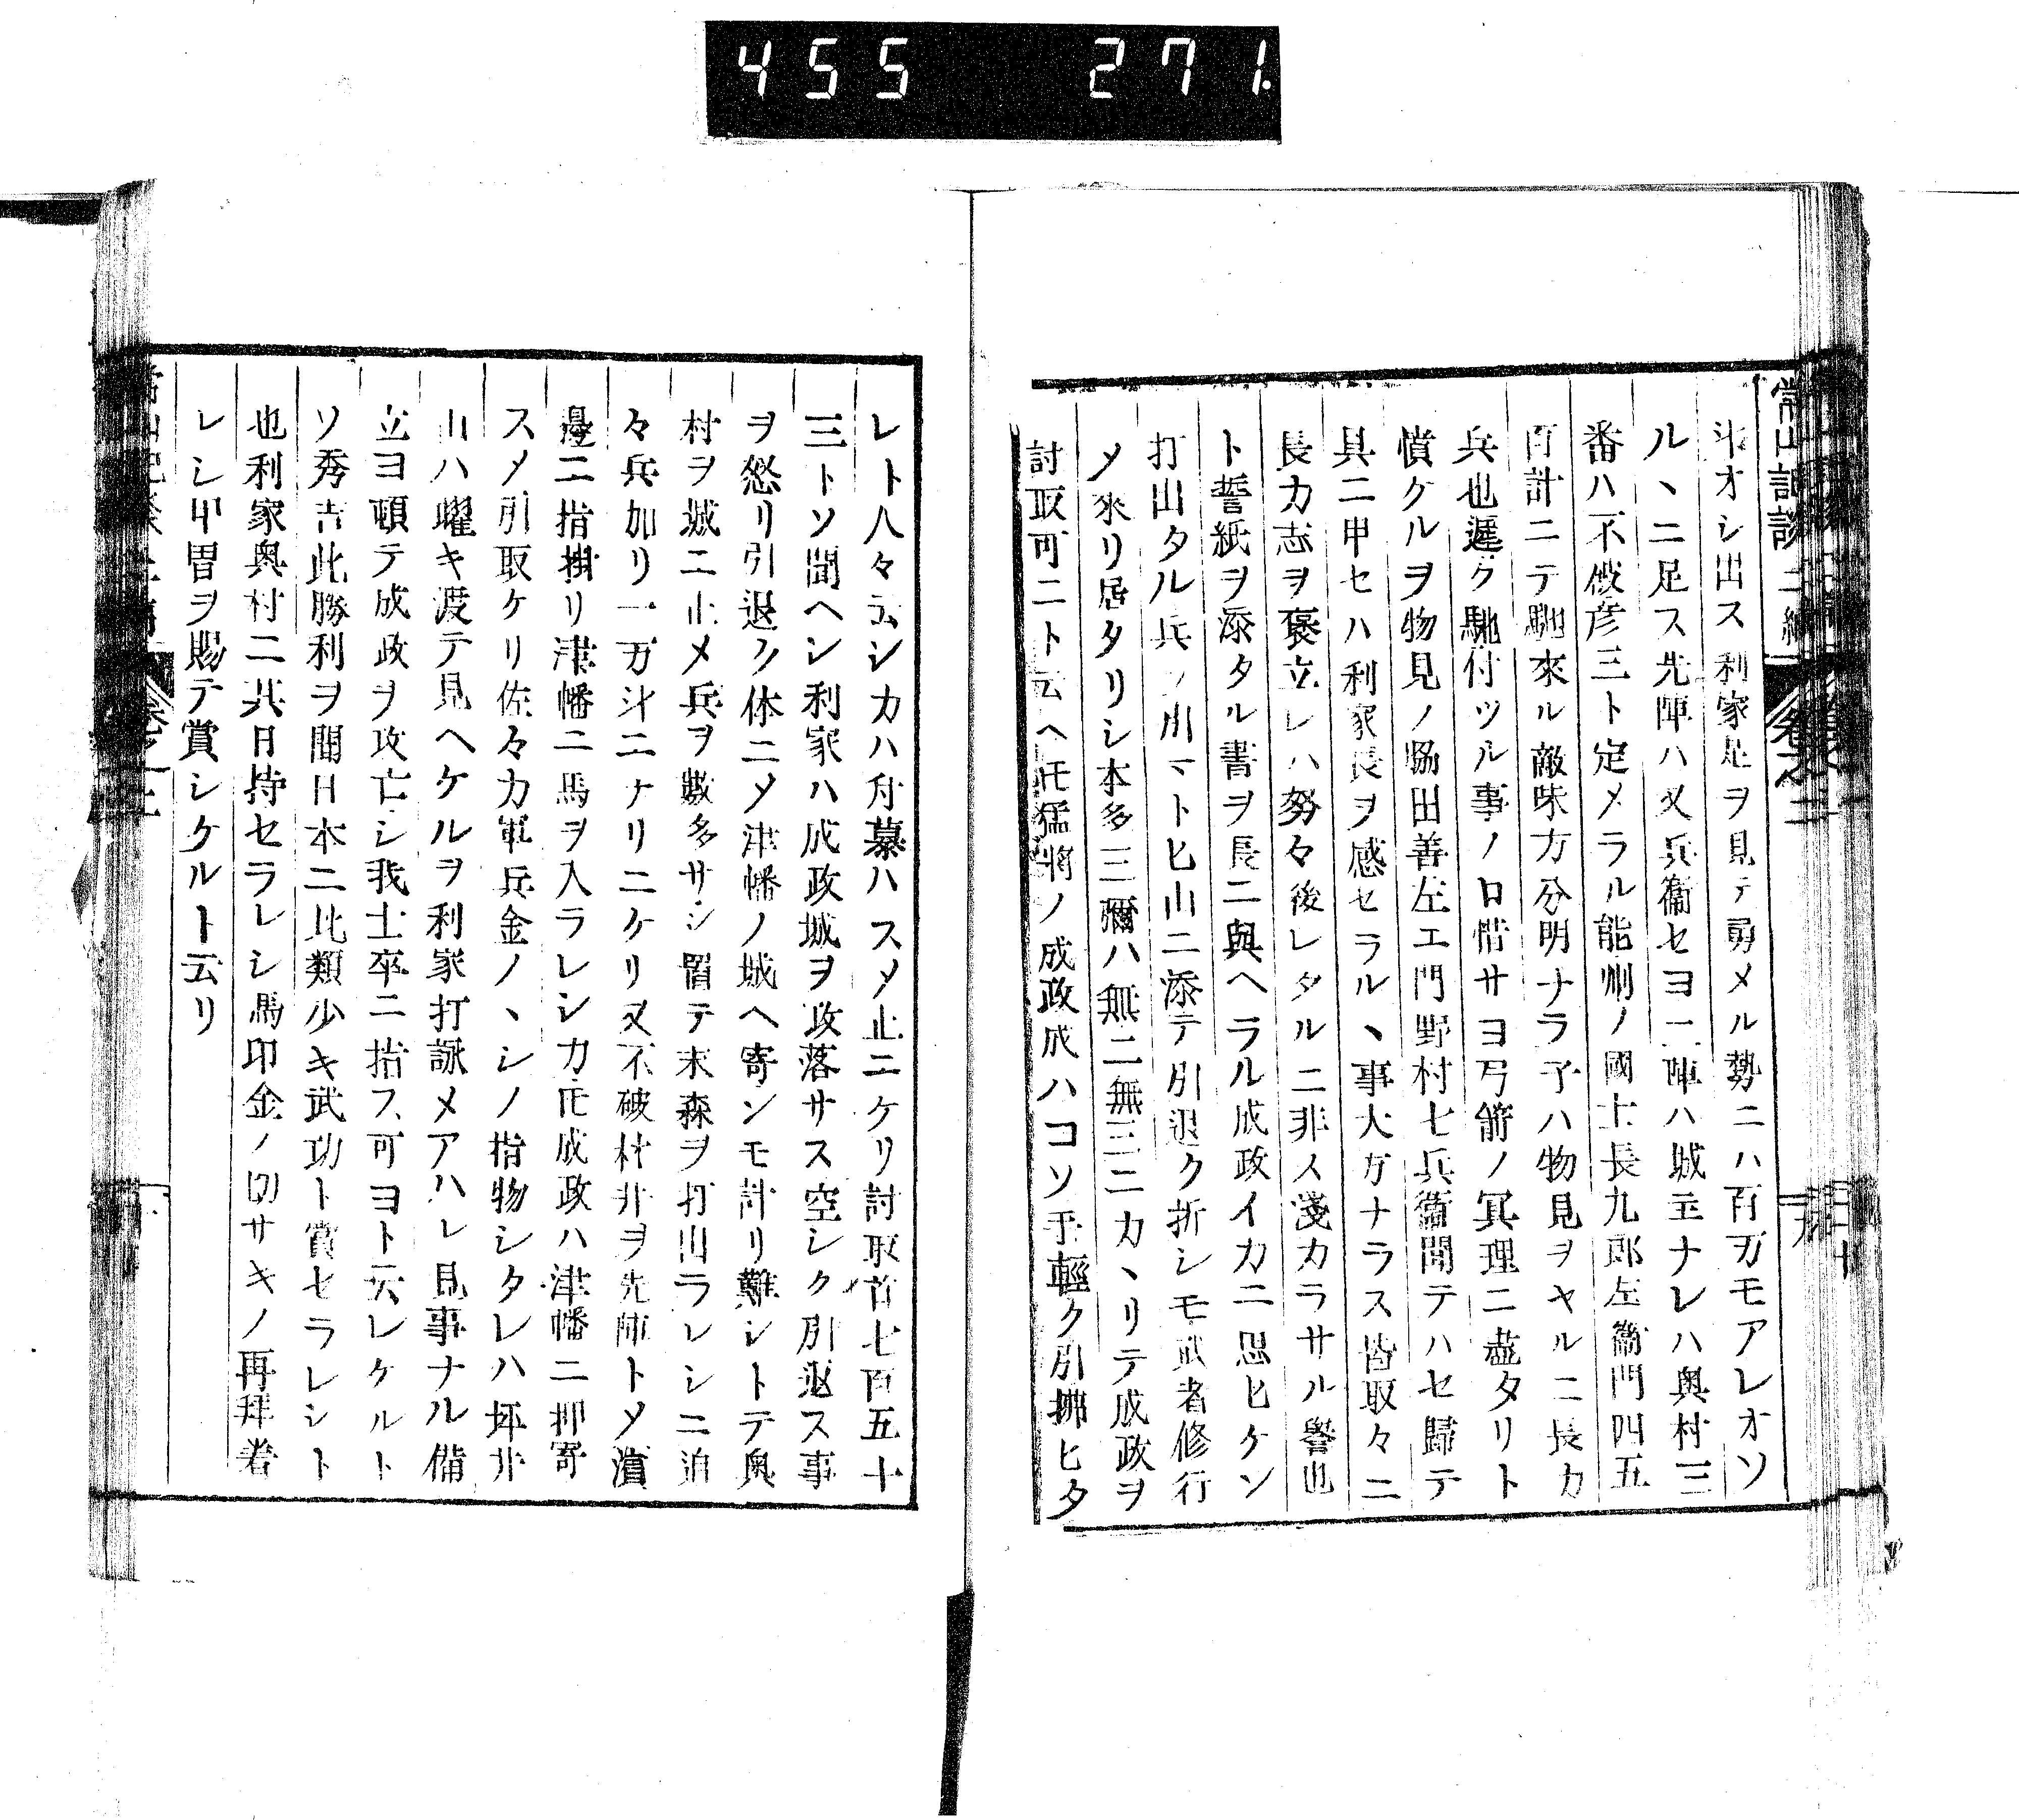 455 271.
常山記談 二編 卷之二 十九
斗オシ出ス利家是ヲ見テ勇メル勢ニハ百万モアレオソ
ルヽニ足ス先陣ハ又兵衞セヨ二陣ハ城主ナレハ奥村三
番ハ不破彦三ト定メラル能州ノ國士長九郎左衞門四五
百計ニテ馳來ル敵味方分明ナラ子ハ物見ヲヤルニ長カ
兵也遲ク馳付ツル事ノ口惜サヨ弓箭ノ冥理ニ盡タリト
憤ケルヲ物見ノ脇田善左エ門野村七兵衞聞テハセ歸テ
具ニ申セハ利家長ヲ感セラルヽ事大方ナラス皆取々ニ
長カ志ヲ褒立レハ努々後レタルニ非ス淺カラサル譽也
ト誓紙ヲ添タル書ヲ長ニ與ヘラル成政イカニ思ヒケン
打出タル兵ノ出マトヒ山ニ添テ引退ク折シモ武者修行
メ來リ居タリシ本多三彌ハ無二無三ニカヽリテ成政ヲ
討取可ニト云ヘ𪜈猛將ノ成政成ハコソ手輕ク引拂ヒタ
レト人々云シカハ舟慕ハスメ止ニケリ討取首七百五十
三トソ聞ヘシ利家ハ成政城ヲ攻落サス空シク引返ス事
ヲ怒リ引退ク休ニメ津幡ノ城ヘ寄ンモ計リ難シトテ奥
村ヲ城ニ止メ兵ヲ數多サシ置テ末森ヲ打出ラレシニ追
々兵加リ一万斗ニナリニケリ又不破村井ヲ先陣トメ濱
邊ニ指掛リ津幡ニ馬ヲ入ラレシカ𪜈成政ハ津幡ニ押寄
スメ引取ケリ佐々カ軍兵金ノヽシノ指物シタレハ坪井
山ハ曜キ渡テ見ヘケルヲ利家打詠メアハレ見事ナル備
立ヨ頓テ成政ヲ攻亡シ我士卒ニ指ス可ヨト云レケルト
ソ秀吉此勝利ヲ聞日本ニ比類少キ武功ト賞セラレシト
也利家奥村ニ其日持セラレシ馬印金ノ切サキノ再拜着
レシ甲冑ヲ賜テ賞シケルト云リ